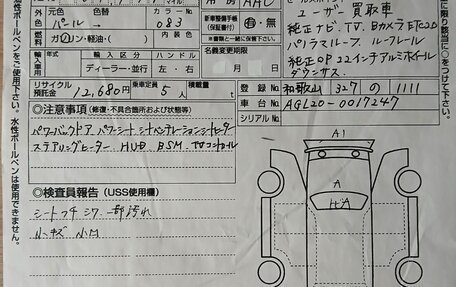 水性ボールペンをご使用下さい。水性ボールペンは使用できません。
元色 色替
カラー No.
パール 083
燃料 ガソリン・軽油・( )
内装色
輸入車 年式 輸入区分 ハンドル
年 ディーラー・並行 左・右
リサイクル預託金 12,680円 乗車定員 5人 積載量
冷房 AAC
新車整備手帳(保証書付) 有・無
※書類と一緒に保管して下さい。
ユーザー買取車
純正ナビ、TV、Bカメラ、ETC2.0
パノラマルーフ、ルーフレール
純正OP 22インチアルミホイール
ダウンサス
登録No. 和歌山 327 の 1111
車台No. AGL20-0017247
シリアルNo.
◎注意事項(修復・不具合箇所および状態等)
パワーバックドア パワーシート シートベンチレーション シートヒーター
ステアリングヒーター HUD BSM
◎検査員報告(USS使用欄)
シートフチシワ 一部汚れ
小キズ 小凹
A1
A